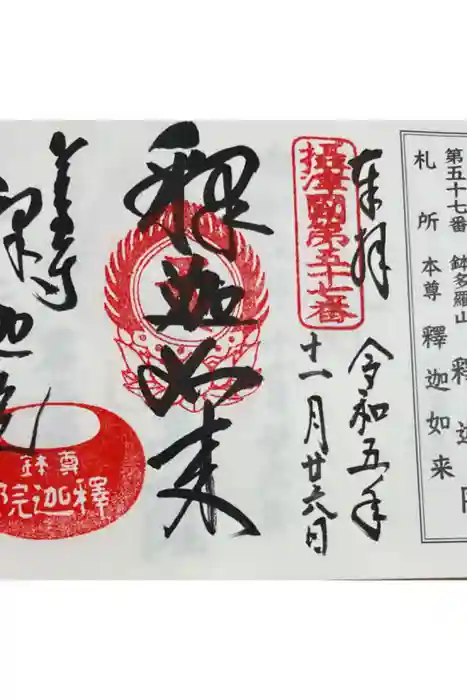 第五十七番 鉢多羅山 釋迦院
札所本尊 釋迦如来
奉拝
令和五年
十一月廿六日
摂津國第五十七番
釋迦如来
釋迦院
尊鉢
釋迦院